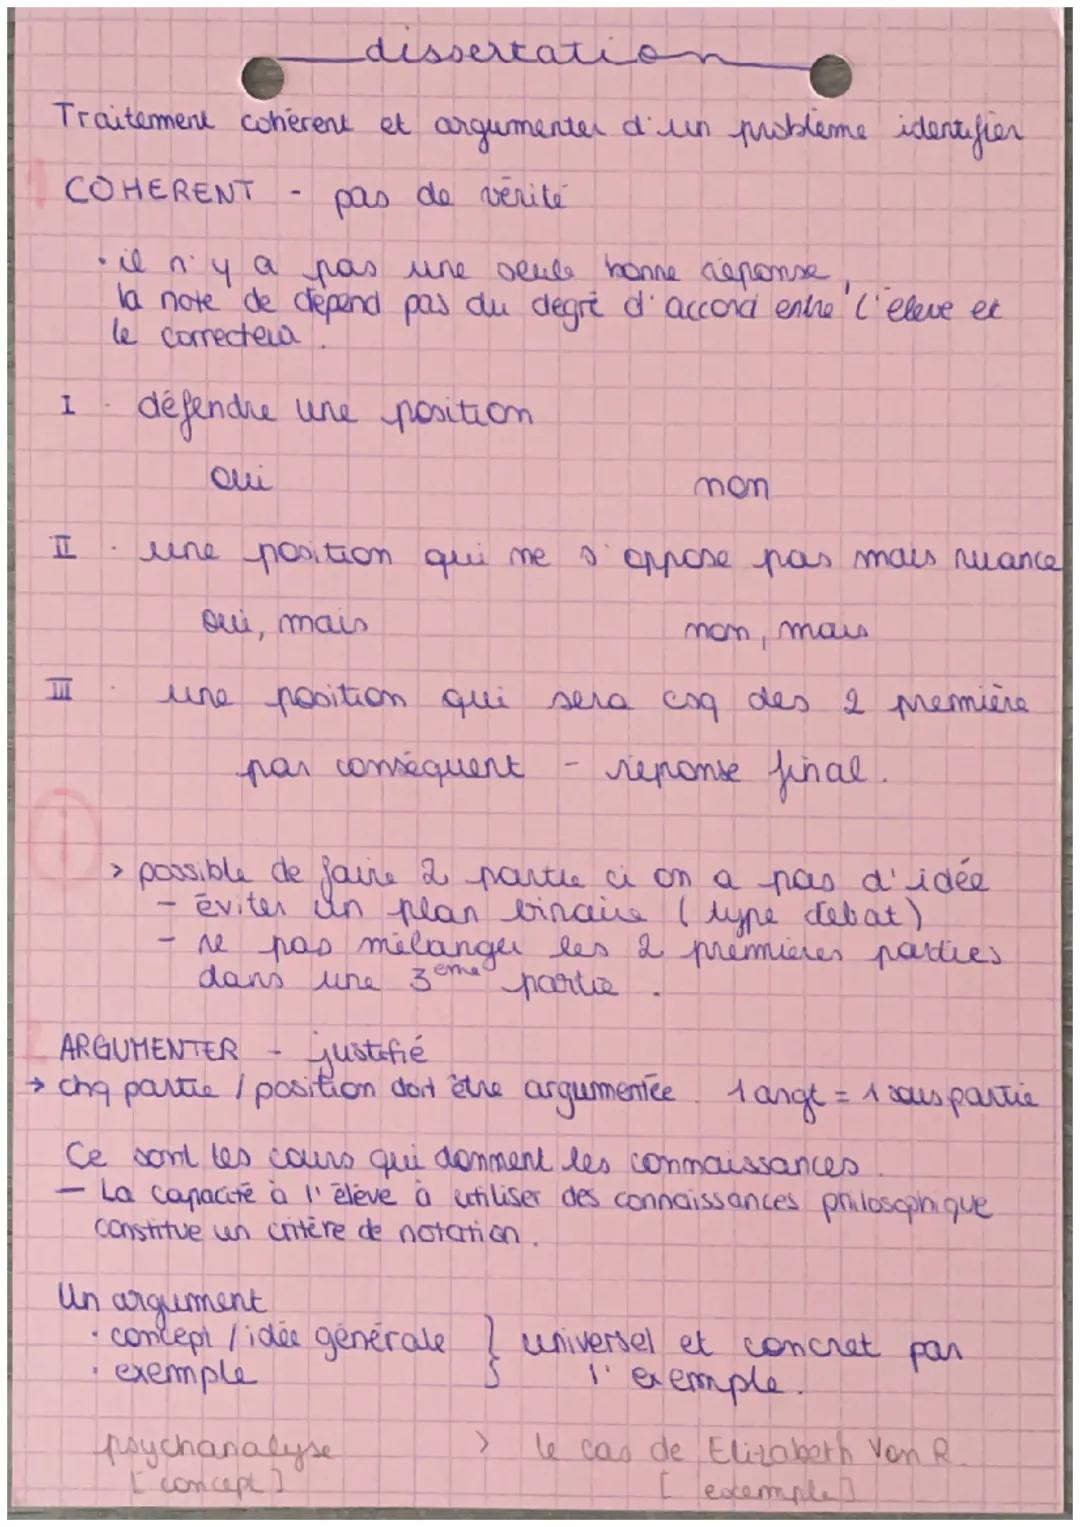 dissertation
Traitement cohérent et argumenter d'un problème identifier
1 COHERENT - pas de vérité
· il n'y a pas une seule bonne réponse,
la note de dépend pas du degré d'accord entre l'élève et
le correcteur.
I · défendre une position
oui non
II · une position qui ne s'oppose pas mais nuance
oui, mais non, mais
III · une position qui sera csq des 2 première
par conséquent - réponse final.
i
> possible de faire 2 partie ci on a pas d'idée
- éviter un plan binaire (type debat)
- ne pas mélanger les 2 premières parties
dans une 3eme partie.
2 ARGUMENTER - justifié
→ chq partie / position doit être argumentée. 1 argt = 1 sous partie
Ce sont les cours qui donnent les connaissances.
- La capacité à l'élève à utiliser des connaissances philosophique
constitue un critère de notation.
Un argument
· concept / idée générale } universel et concret par
· exemple l'exemple.
psychanalyse > le cas de Elizabeth Von R.
[concept] [exemple]